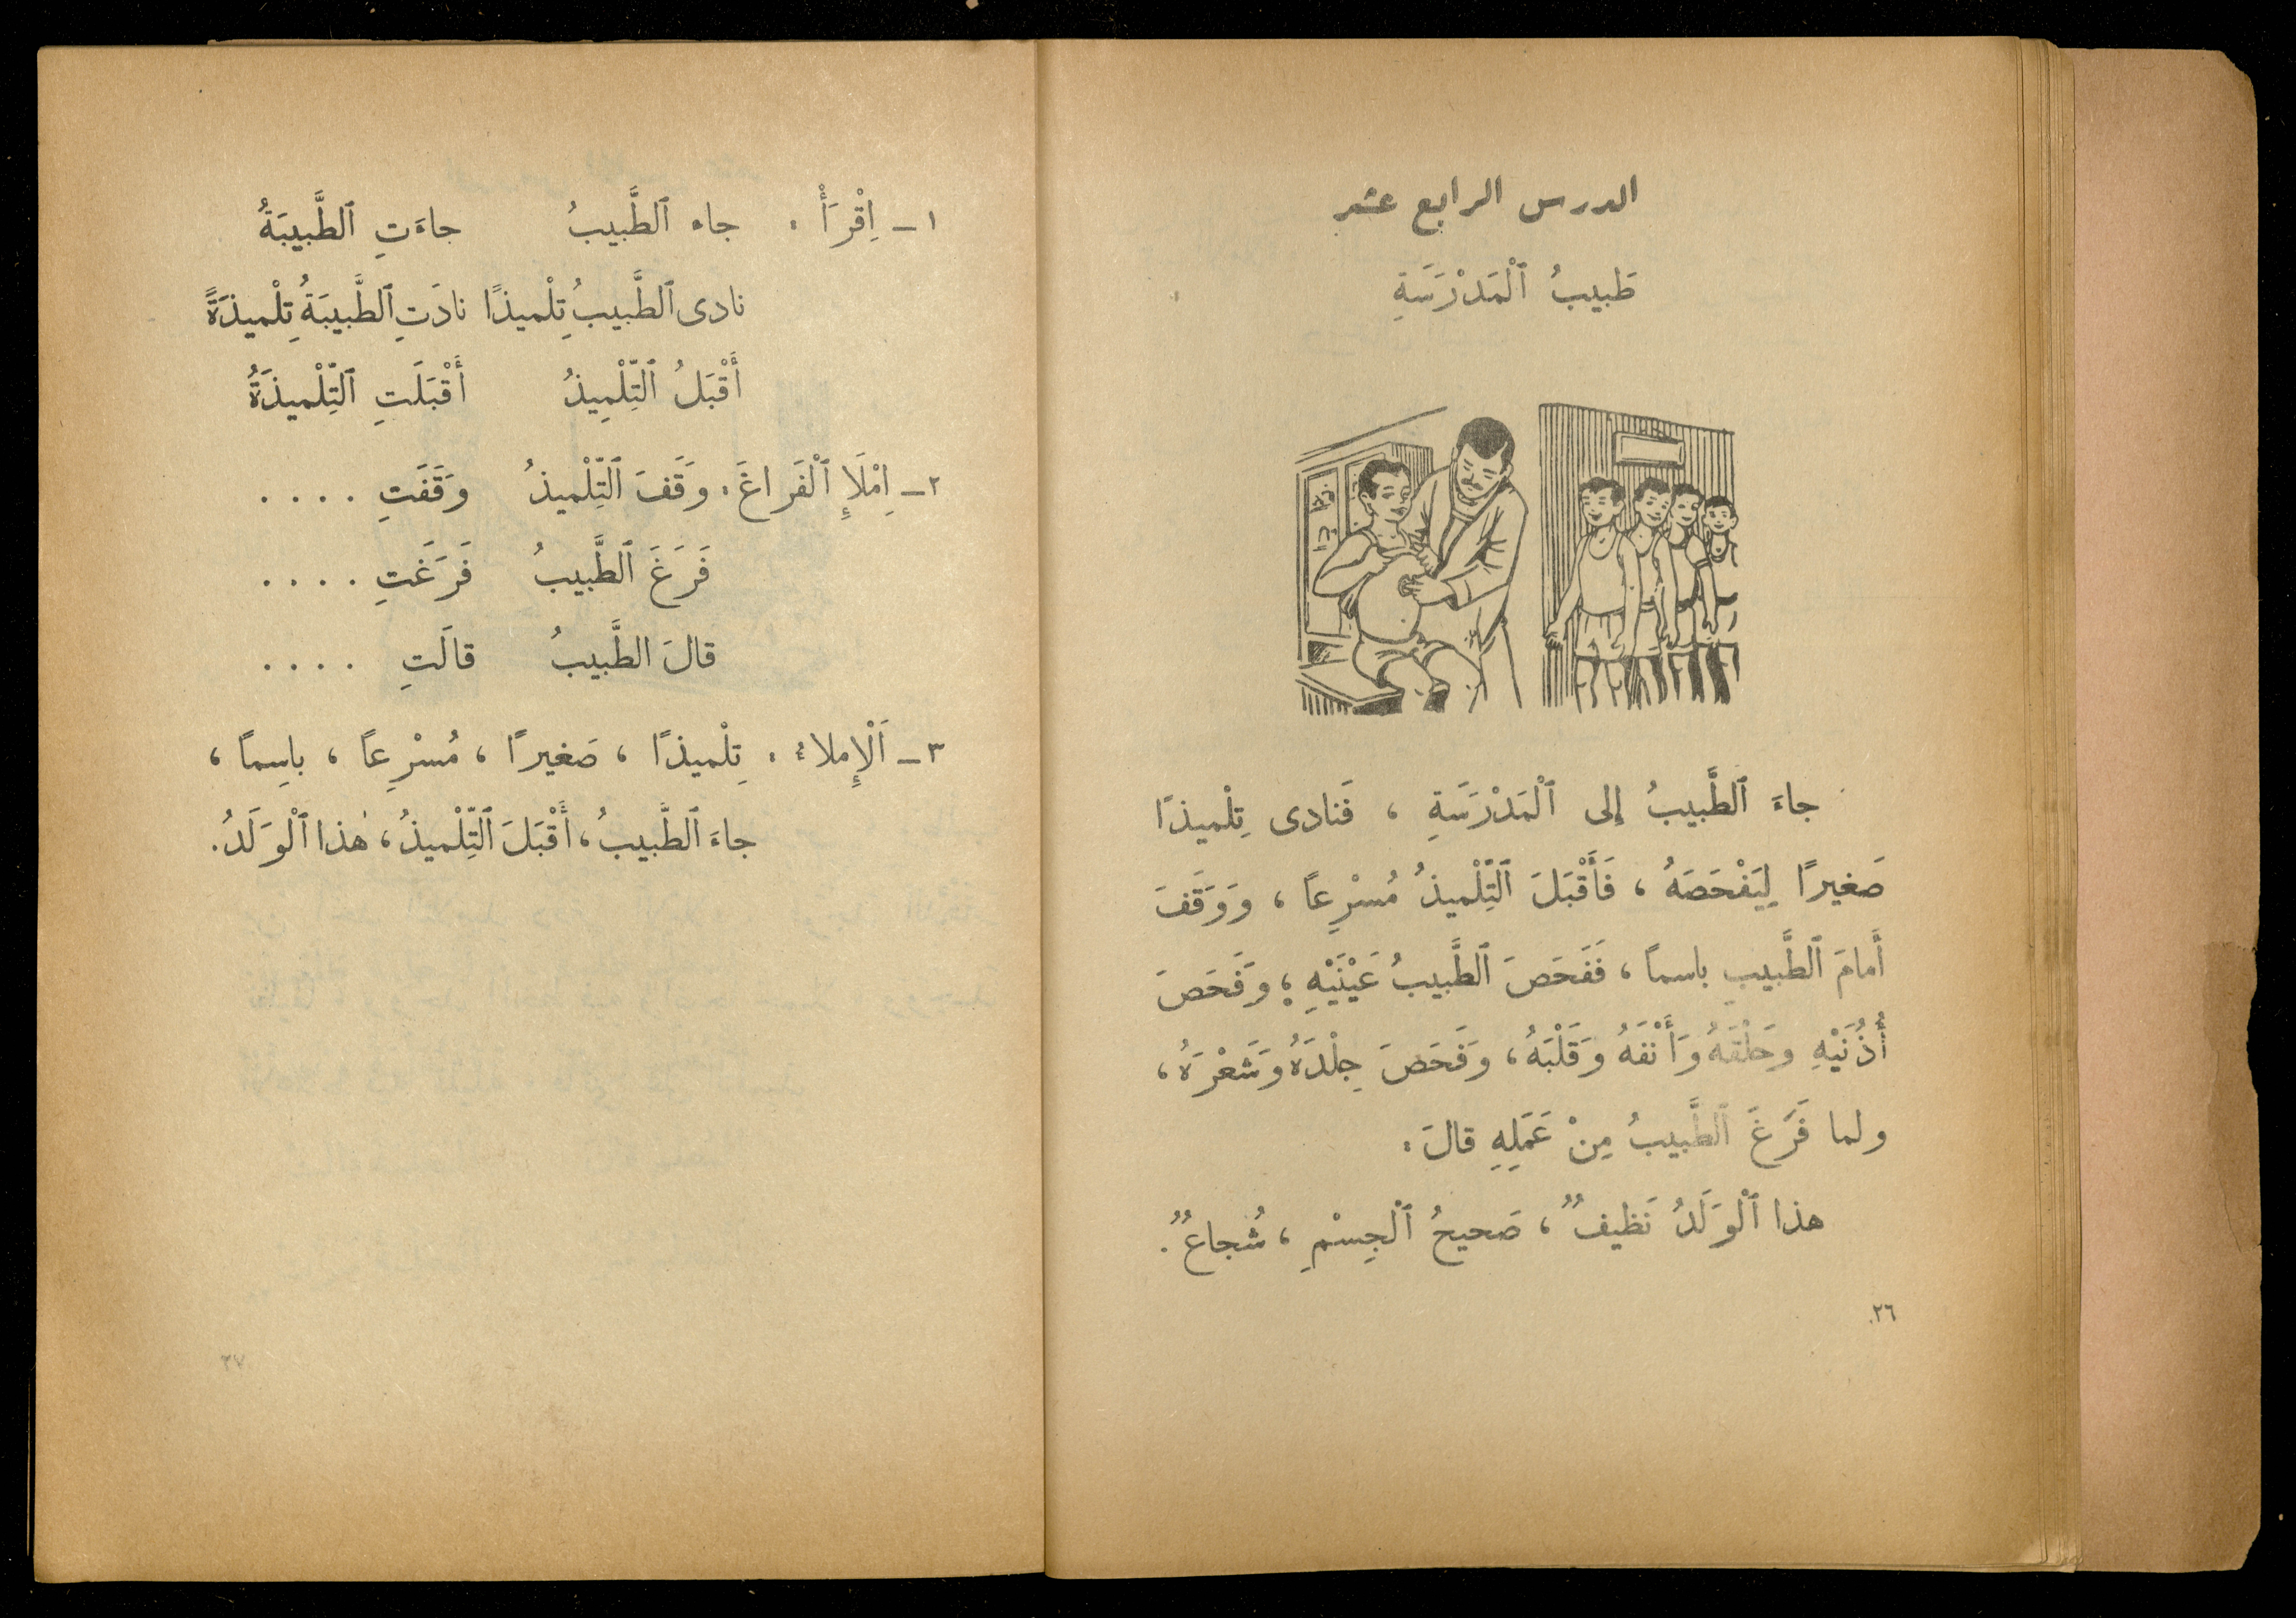 الدرس الرابع عشر
طَبيبُ ٱلْمَدْرَسَةِ
جاءَ ٱلطَّبيبُ إلى ٱلْمَدْرَسَةِ ، فَنادى تِلْميذًا
صَغيرًا لِيَفْحَصَهُ ، فَأَقْبَلَ ٱلتِّلْميذُ مُسْرِعًا ، وَوَقَفَ
أَمامَ ٱلطَّبيبِ باسماً ، فَفَحَصَ ٱلطَّبيبُ عَيْنَيْهِ ؛ وَفَحَصَ
أُذُنَيْهِ وحَلْقَهُ وَأَنْفَهُ وَقَلْبَهُ ، وَفَحَصَ جِلْدَهُ وَشَعْرَهُ ،
ولما فَرَغَ ٱلطَّبيبُ مِنْ عَمَلِهِ قالَ :
هذا ٱلْوَلَدُ نَظيفٌ ، صَحيحُ ٱلْجِسْمِ ، شُجاعٌ .
٢٦
١ ـ اِقْرَأْ : جاء ٱلطَّبيبُ جاءَتِ ٱلطَّبيبَةُ
نادى ٱلطَّبيبُ تِلْميذًا نادَتِ ٱلطَّبيبَةُ تِلْميذَةً
أَقْبَلُ ٱلتِّلْمِيذُ أَقْبَلَتِ ٱلتِّلْميذَةُ
٢ ـ اِمْلَإِ ٱلْفَراغَ : وَقَفَ ٱلتِّلْميذُ وَقَفَتِ . . . .
فَرَغَ ٱلطَّبيبُ فَرَغَتِ . . . .
قالَ الطَّبيبُ قالَتِ . . . .
٣ ـ اَلْإِملاءُ : تِلْميذًا ، صَغيرًا ، مُسْرِعًا ، باسِماً ،
جاءَ ٱلطَّبيبُ ، أَقْبَلَ ٱلتِّلْميذُ ، هٰذا ٱلْوَلَدُ .
٢٧